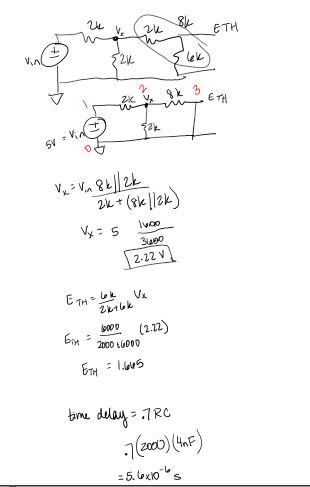 2k Vx 2k 8k ETH
Vin 2k 6k
1 2k 2 Vx 8k 3 ETH
5V = Vin 2k
0
Vx = Vin 8k||2k
2k + (8k||2k)
Vx = 5 1600
3600
2.22 V
ETH = 6k Vx
2k+6k
ETH = 6000 (2.22)
2000+6000
ETH = 1.665
time delay = .7 RC
.7(2000)(4nF)
= 5.6x10⁻⁶ s